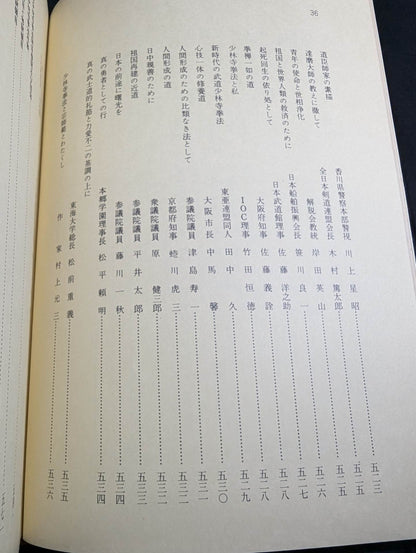 36
遺臣師家の素描 香川県警察本部警視 川上星昭 五二三
達磨大師の教えに徹して 全日本剣道連盟会長 木村篤太郎 五二五
青年の使命と世相浄化 解脱会教統 岸田英山 五二五
祖国と世界人類の救済のために 日本船舶振興会長 笹川良一 五二六
起死回生の依り処として 日本武道館理事 佐藤洋之助 五二七
拳禅一如の道 大阪府知事 佐藤義詮 五二八
少林寺拳法と私 IOC理事 竹田恒徳 五二八
新時代の武道少林寺拳法 東亜連盟同人 田中久 五二九
心技一体の修養道 大阪市長 中馬馨 五三〇
人間形成のための比類なき法として 参議院議員 津島寿一 五三一
人間形成の道 京都府知事 蜷川虎三 五三二
日中親善のために 衆議院議員 原健三郎 五三二
祖国再建の近道 参議院議員 平井太郎 五三三
日本の前途に曙光を 参議院議員 藤川一秋 五三四
真の勇者としての行 本郷学園理事長 松平頼明 五三四
真の武士道的礼節と力愛不二の基調の上に 東海大学総長 松前重義 五三五
少林寺拳法と宗師範とわたくし 作家 村上元三 五三六